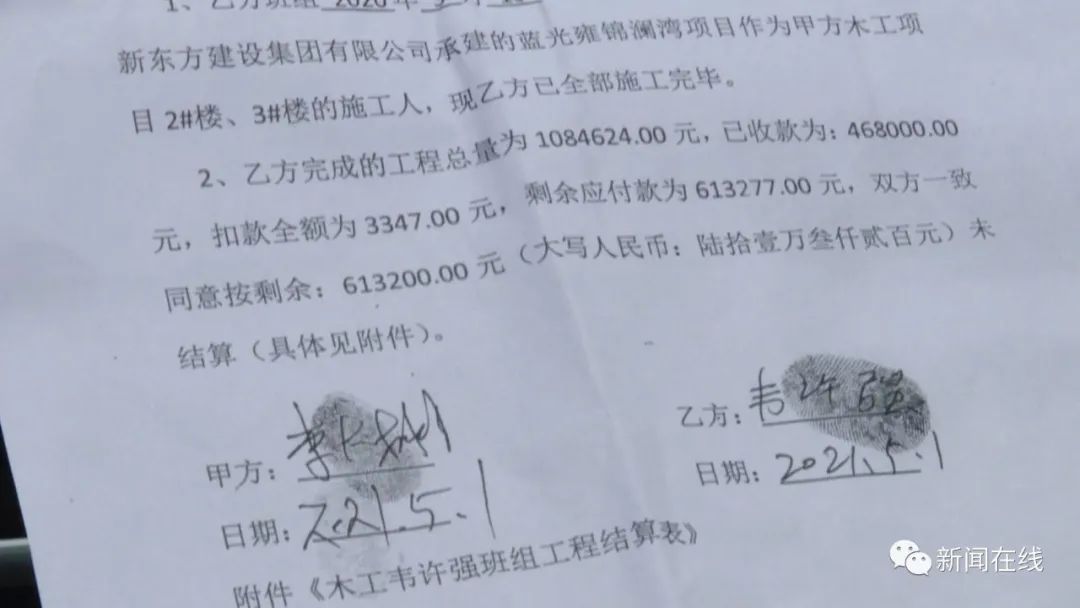 1、乙方班组 2020 年
新东方建设集团有限公司承建的蓝光雍锦澜湾项目作为甲方木工项
目 2#楼、3#楼的施工人，现乙方已全部施工完毕。
2、乙方完成的工程总量为 1084624.00 元，已收款为：468000.00
元，扣款全额为 3347.00 元，剩余应付款为 613277.00 元，双方一致
同意按剩余：613200.00 元（大写人民币：陆拾壹万叁仟贰百元）未
结算（具体见附件）。
甲方：
日期：2021.5.1
乙方：韦许强
日期：2021.5.1
附件《木工韦许强班组工程结算表》
新闻在线